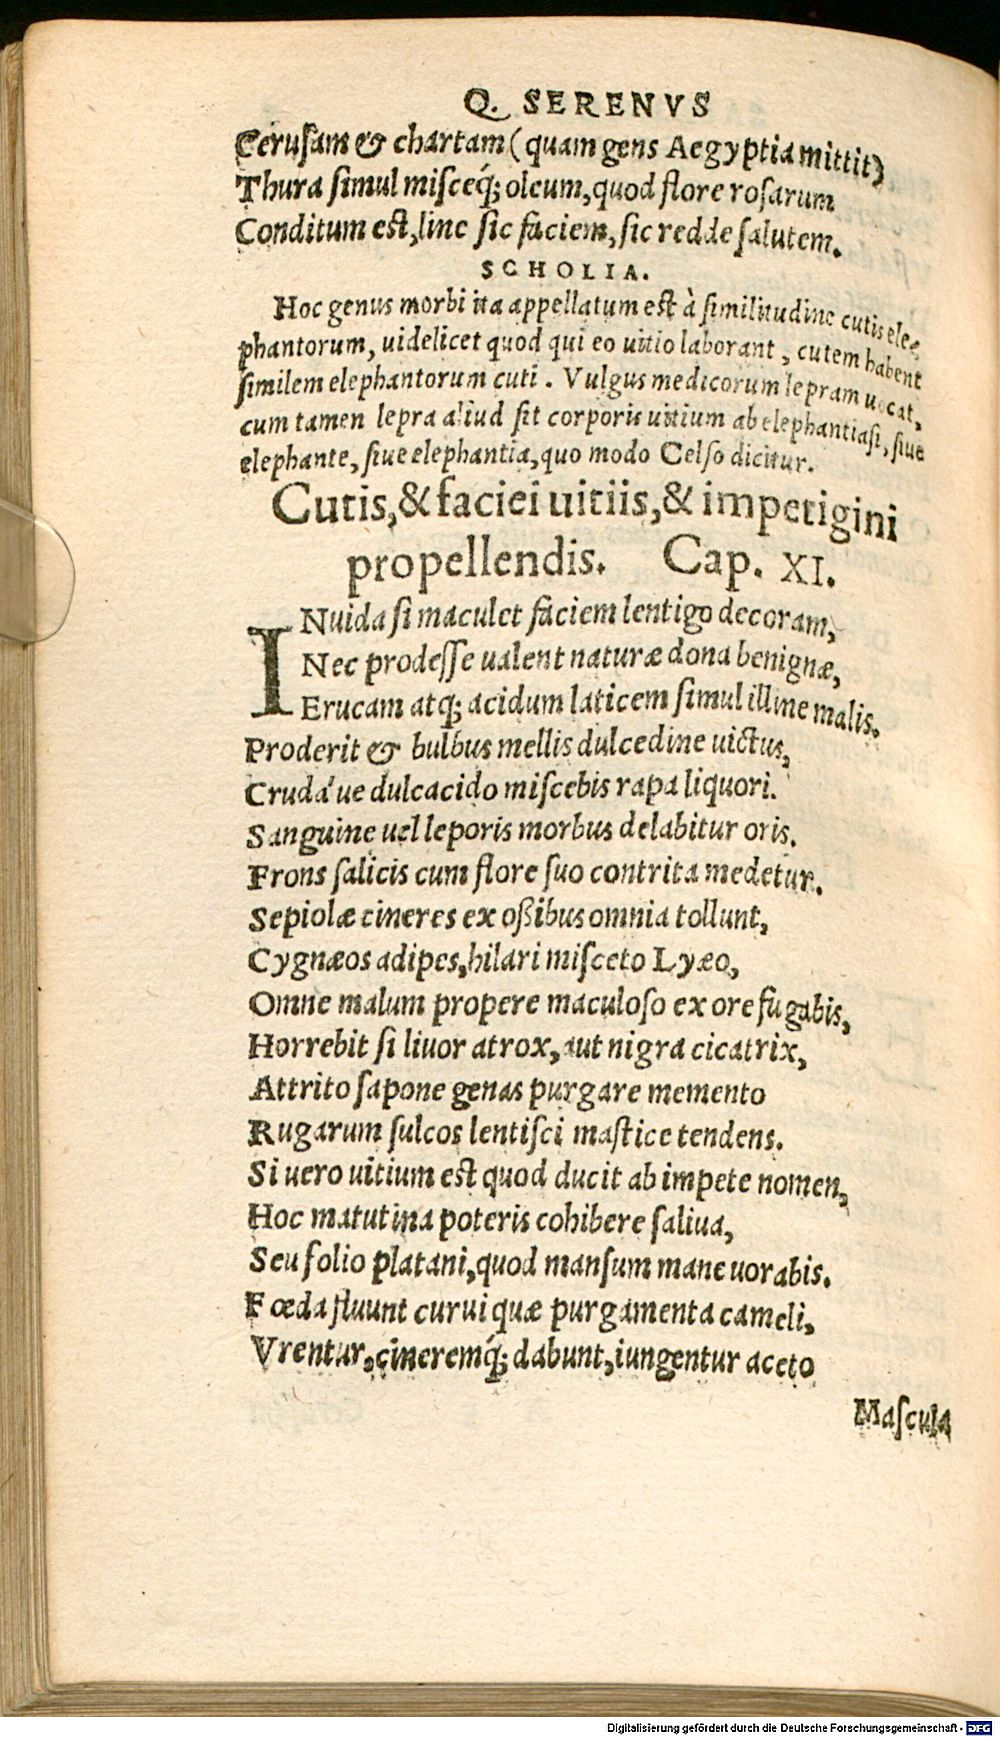 Q. SERENVS
Cerusam & chartam (quam gens Aegyptia mittit)
Thura simul misceq́; oleum, quod flore rosarum
Conditum est, line sic faciem, sic redde salutem.
SCHOLIA.
Hoc genus morbi ita appellatum est à similitudine cutis ele-
phantorum, uidelicet quod qui eo uitio laborant, cutem habent
similem elephantorum cuti. Vulgus medicorum lepram uocat,
cum tamen lepra aliud sit corporis uitium ab elephantiasi, siue
elephante, siue elephantia, quo modo Celso dicitur.
Cutis, & faciei uitiis, & impetigini
propellendis. Cap. XI.
INuida si maculet faciem lentigo decoram,
Nec prodesse ualent naturæ dona benignæ,
Erucam atq; acidum laticem simul illine malis.
Proderit & bulbus mellis dulcedine uictus,
Crudá ue dulcacido miscebis rapa liquori.
Sanguine uel leporis morbus delabitur oris.
Frons salicis cum flore suo contrita medetur.
Sepiolæ cineres ex oßibus omnia tollunt,
Cygnæos adipes, hilari misceto Lyæo,
Omne malum propere maculoso ex ore fugabis,
Horrebit si liuor atrox, aut nigra cicatrix,
Attrito sapone genas purgare memento
Rugarum sulcos lentisci mastice tendens.
Si uero uitium est quod ducit ab impete nomen,
Hoc matutina poteris cohibere saliua,
Seu folio platani, quod mansum mane uorabis.
Fœda fluunt curui quæ purgamenta cameli,
Vrentur, cineremq́; dabunt, iungentur aceto
Mascula
Digitalisierung gefördert durch die Deutsche Forschungsgemeinschaft - DFG